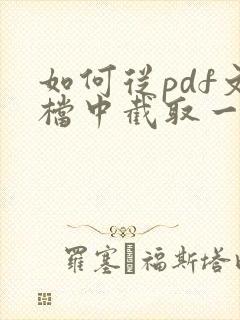 如何從pdf文
檔中截取一
羅塞 福斯塔